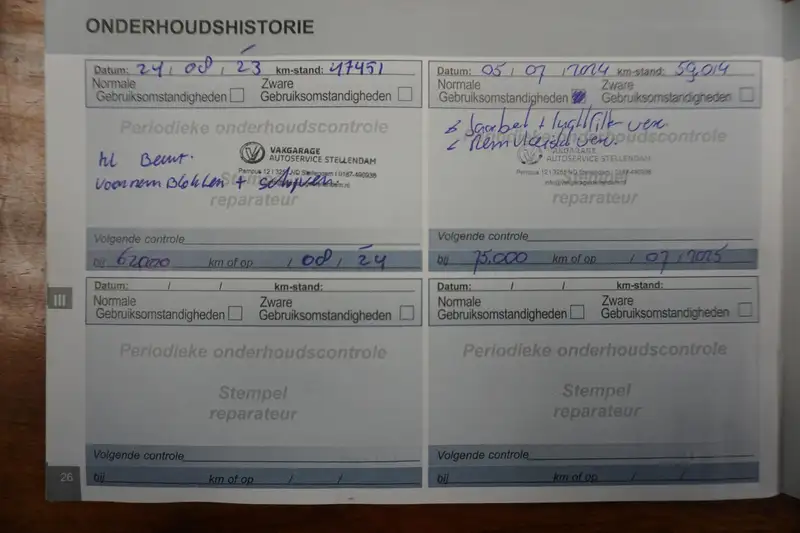 ONDERHOUDSHISTORIE
Datum: 24 / 08 / 23 km-stand: 47451
Normale
Gebruiksomstandigheden
Zware
Gebruiksomstandigheden
Periodieke onderhoudscontrole
VAKGARAGE
AUTOSERVICE STELLENDAM
voorrem Blokken + schijven.
Stempel
reparateur
Volgende controle
bij 62000 km of op / 08 / 24
Datum: 05 / 07 / 2024 km-stand: 59.014
Normale
Gebruiksomstandigheden
Zware
Gebruiksomstandigheden
Periodieke onderhoudscontrole
+ luchtfilter
VAKGARAGE
AUTOSERVICE STELLENDAM
Stempel
reparateur
Volgende controle
bij 75.000 km of op / 07 / 2025
III
Datum: / / km-stand:
Normale
Gebruiksomstandigheden
Zware
Gebruiksomstandigheden
Periodieke onderhoudscontrole
Stempel
reparateur
Volgende controle
bij km of op / /
Datum: / / km-stand:
Normale
Gebruiksomstandigheden
Zware
Gebruiksomstandigheden
Periodieke onderhoudscontrole
Stempel
reparateur
Volgende controle
bij km of op / /
26